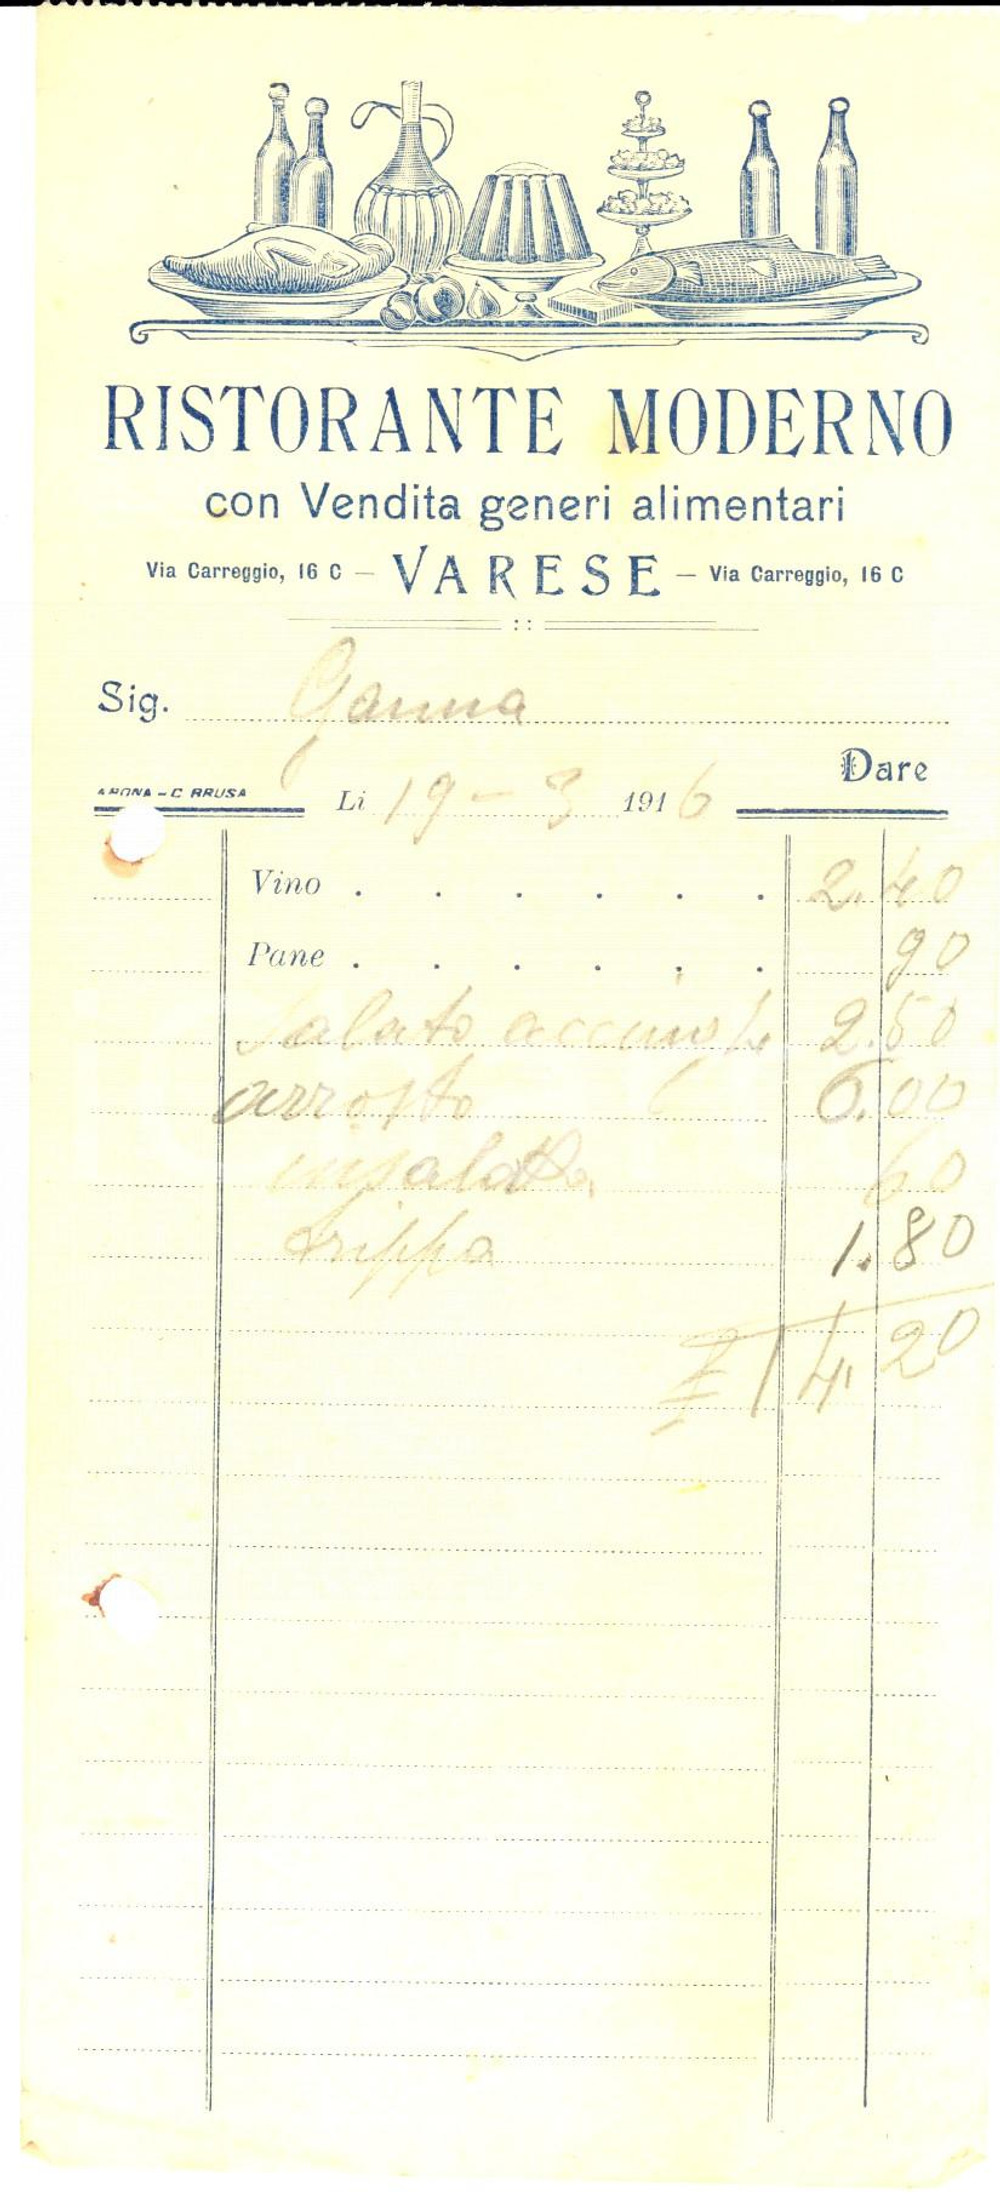 RISTORANTE MODERNO
con Vendita generi alimentari
Via Carreggio, 16 C — VARESE — Via Carreggio, 16 C
Sig. Ganna
Dare
ARONA - C. BRUSA
Li 19 - 3 1916
Vino . . . . . . 2.40
Pane . . . . . . 90
Salato acciughe 2.50
arrosto 6.00
insalata 60
trippa 1.80
£ 14.20